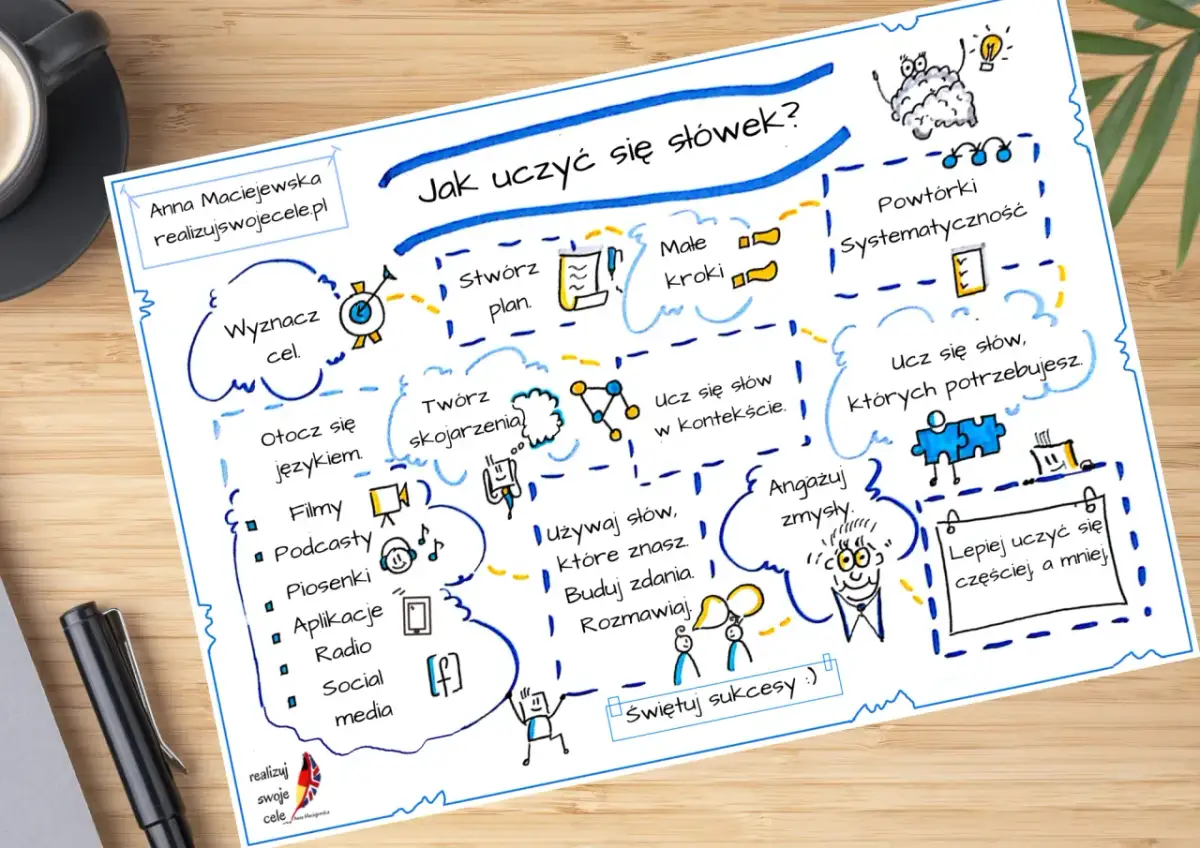 Anna Maciejewska
realizujswojecele.pl
Jak uczyć się słówek?
Wyznacz
cel.
Stwórz
plan.
Małe
kroki
Powtórki
Systematyczność
Ucz się słów,
których potrzebujesz.
Ucz się słów
w kontekście.
Twórz
skojarzenia
Otocz się
językiem.
Filmy
Podcasty
Piosenki
Aplikacje
Radio
Social
media
f
Używaj słów,
które znasz.
Buduj zdania.
Rozmawiaj.
Angażuj
zmysły.
Lepiej uczyć się
częściej, a mniej.
Świętuj sukcesy :)
realizuj
swoje
cele
Anna Maciejewska